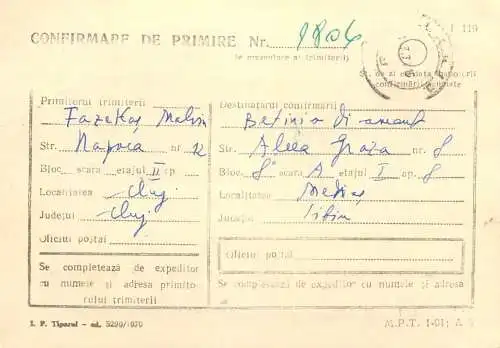 I 119
CONFIRMARE DE PRIMIRE Nr. 1804
(de prezentare a trimiterii)
confirmării
Primitorul trimiterii
Fazekaș Malvin
Str. Napoca nr 12
Bloc scara etajul II ap.
Localitatea Cluj
Județul Cluj
Oficiul poștal
Se completează de expeditor
cu numele și adresa primito-
rului trimiterii
Destinatarul confirmării
Str. Aleea nr. 8
Bloc 8 scara A etajul I ap. 8
Localitatea Mediaș
Județul Sibiu
Oficiul poștal
Se completează de expeditor cu numele și adresa
I. P. Tiparul - cd. 5290/1970
M.P.T. 1-01; A 6